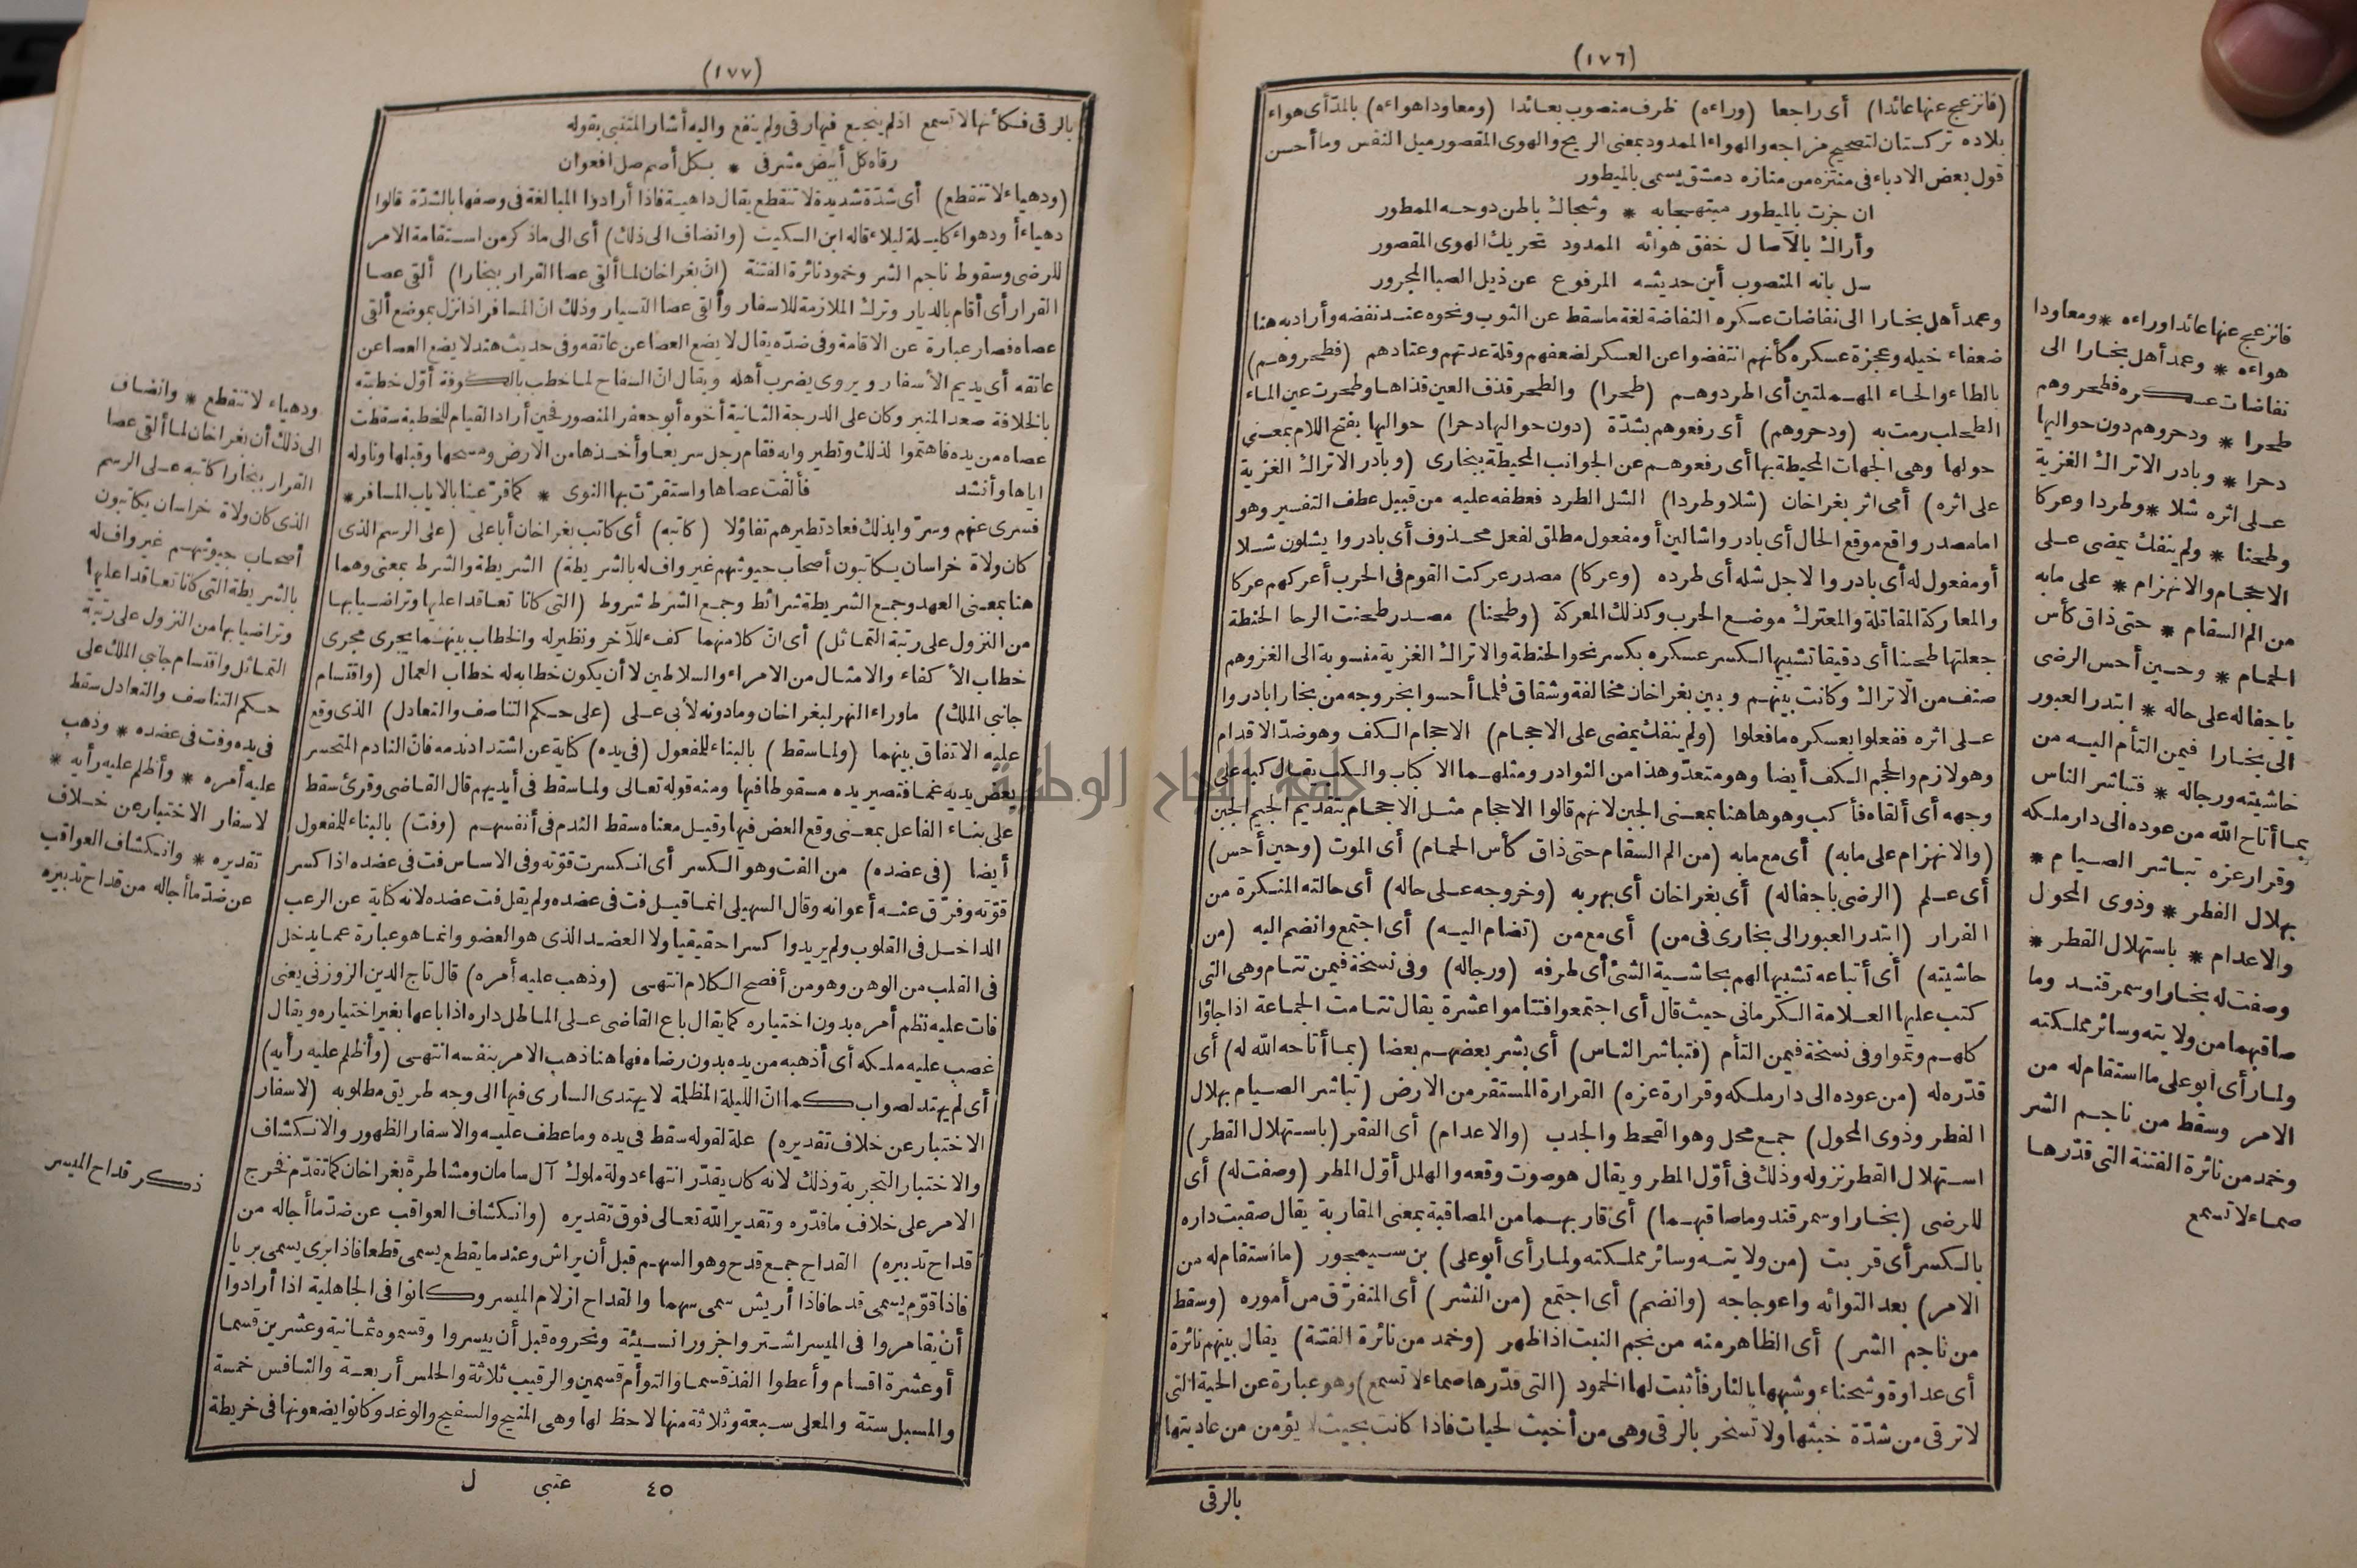 (١٧٦)
(فانزعج عنها عائدا) أى راجعا (وراءه) ظرف منصوب بعائدا (ومعاودا هواءه) بالمد أى هواء
بلاده تركستان لتصحيح مزاجه والهواء الممدود بمعنى الريح والهوى المقصور ميل النفس وما أحسن
قول بعض الادباء فى منتزه من منازه دمشق يسمى بالميطور
ان جزت بالميطور مبتهجا به * وشجاك باطن دوحه الممطور
وأراك بالآصال خفق هوائه الممدود تحريك الهوى المقصور
سل بانه المنصوب أين حديثه المرفوع عن ذيل الصبا المجرور
وعمد أهل بخارا الى نفاضات عسكره النفاضة لغة ماسقط عن الثوب ونحوه عند نفضه وأراد به هنا
ضعفاء خيله وعجزة عسكره كأنهم انتفضوا عن العسكر لضعفهم وقلة عدتهم وعتادهم (فطحروهم)
بالطاء والحاء المهملتين أى اطردوهم (طحرا) والطحر قذف العين قذاها وطحرت عين الماء
الطحلب رمت به (ودحروهم) أى رفعوهم بشدّة (دون حواليها دحرا) حواليها بفتح اللام بمعنى
حولها وهى الجهات المحيطة بها أى رفعوهم عن الجوانب المحيطة ببخارى (وبادر الاتراك الغزية
على اثره) أى اثر بغراخان (شلا وطردا) الشل الطرد فعطفه عليه من قبيل عطف التفسير وهو
اما مصدر واقع موقع الحال أى بادروا شالين أو مفعول مطلق لفعل محذوف أى بادروا يشلون شلا
أو مفعول له أى بادروا لاجل شله أى طرده (وعركا) مصدر عركت القوم فى الحرب أعركهم عركا
والمعاركة المقاتلة والمعترك موضع الحرب وكذلك المعركة (وطحنا) مصدر طحنت الرحا الحنطة
جعلتها طحينا أى دقيقا تشبيها لكسر عسكره بكسر نحو الحنطة والاتراك الغزية منسوبة الى الغز وهم
صنف من الاتراك وكانت بينهم وبين بغراخان مخالفة وشقاق فلما أحسوا بخروجه من بخارا بادروا
على اثره ففعلوا بعسكره مافعلوا (ولم ينفك يمضى على الاحجام) الاحجام الكف وهو ضدّ الاقدام
وهو لازم والحجم الكف أيضا وهو متعدّ وهذا من النوادر ومثلهما الاكباب والكب يقال كبه على
وجهه أى ألقاه فأكب وهو هاهنا بمعنى الجبن لانهم قالوا الاحجام مثل الاجحام بتقديم الجيم الجبن
(والانهزام على مابه) أى مع مابه (من الم السقام حتى ذاق كأس الحمام) أى الموت (وحين أحس)
أى علم (الرضى باجفاله) أى بغراخان أى بهربه (وخروجه على حاله) أى حالته المنكرة من
الفرار (ابتدر العبور الى بخارى فى من) أى مع من (تضام اليه) أى اجتمع وانضم اليه (من
حاشيته) أى أتباعه تشبيها لهم بحاشية الشئ أى طرفه (ورجاله) وفى نسخة فيمن تتام وهى التى
كتب عليها العلامة الكرمانى حيث قال أى اجتمعوا فتتاموا عشرة يقال تتامت الجماعة اذا جاؤا
كلهم وتموا وفى نسخة فيمن التأم (فتباشر الناس) أى بشر بعضهم بعضا (بما أتاحه الله له) أى
قدّره له (من عوده الى دار ملكه وقرارة عزه) القرارة المستقر من الارض (تباشر الصيام بهلال
الفطر وذوى المحول) جمع محل وهو القحط والجدب (والاعدام) أى الفقر (باستهلال القطر)
استهلال القطر نزوله وذلك فى أوّل المطر ويقال هو صوت وقعه والهلل أوّل المطر (وصفت له) أى
للرضى (بخارا وسمرقند وماصاقبهما) أى قاربهما من المصاقبة بمعنى المقاربة يقال صقبت داره
بالكسر أى قربت (من ولايته وسائر مملكته ولما رأى أبوعلى) بن سيمجور (ما استقام له من
الامر) بعد التوائه واعوجاجه (وانضم) أى اجتمع (من النشر) أى المتفرّق من أموره (وسقط
من ناجم الشر) أى الظاهر منه من نجم النبت اذا ظهر (وخمد من نائرة الفتنة) يقال بينهم نائرة
أى عداوة وشحناء وشبهها بالنار فأثبت لها الخمود (التى قدّرها صماء لا تسمع) وهو عبارة عن الحية التى
لاترقى من شدّة خبثها ولا تسخر بالرقى وهى من أخبث الحيات فاذا كانت بحيث لا يؤمن من عاديتها
بالرقى
فانزعج عنها عائدا وراءه * ومعاودا
هواءه * وعمد أهل بخارا الى
نفاضات عسكره فطحروهم
طحرا * ودحروهم دون حواليها
دحرا * وبادر الاتراك الغزية
على اثره شلا * وطردا وعركا
وطحنا * ولم ينفك يمضى على
الاحجام والانهزام * على مابه
من الم السقام * حتى ذاق كأس
الحمام * وحين أحس الرضى
باجفاله على حاله * ابتدر العبور
الى بخارا فيمن التأم اليه من
حاشيته ورجاله * فتباشر الناس
بما أتاح الله من عوده الى دار ملكه
وقرار عزه تباشر الصيام *
بهلال الفطر * وذوى المحول
والاعدام * باستهلال القطر *
وصفت له بخارا وسمرقند وما
صاقبهما من ولايته وسائر مملكته
ولما رأى أبوعلى ما استقام له من
الامر وسقط من ناجم الشر
وخمد من نائرة الفتنة التى قدّرها
صماء لا تسمع
(١٧٧)
بالرقى فكأنها لا تسمع اذ لم ينجع فيها رقى ولم ينفع واليه أشار المتنبى بقوله
رقاه كل أبيض مشرفى * بكل أصم صل افعوان
(ودهياء لا تنقطع) أى شدّة شديدة لا تنقطع يقال داهية فاذا أرادوا المبالغة فى وصفها بالشدّة قالوا
دهياء أ ودهواء كليلة ليلاء قاله ابن السكيت (وانضاف الى ذلك) أى الى ماذكر من استقامة الامر
للرضى وسقوط ناجم الشر وخمود نائرة الفتنة (انّ بغراخان لما ألقى عصا القرار ببخارا) ألقى عصا
القرار أى أقام بالديار وترك الملازمة للاسفار وألقى عصا التسيار وذلك انّ المسافر اذا نزل بموضع ألقى
عصاه فصار عبارة عن الاقامة وفى ضدّه يقال لا يضع العصا عن عاتقه وفى حديث هند لا يضع العصا عن
عاتقه أى يديم الأسفار ويروى يضرب أهله ويقال انّ السفاح لما خطب بالكوفة أوّل خطبته
بالخلافة صعد المنبر وكان على الدرجة الثانية أخوه أبو جعفر المنصور فحين أراد القيام للخطبة سقطت
عصاه من يده فاهتموا لذلك وتطيروا به فقام رجل سريعا وأخذها من الارض ومسحها وقبلها وناوله
اياها وأنشد فألقت عصاها واستقرّت بها النوى * كما قرّ عينا بالاياب المسافر*
فسرى عنهم وسرّوا بذلك فعاد تطيرهم تفاؤلا (كاتبه) أى كاتب بغراخان أباعلى (على الرسم الذى
كان ولاة خراسان يكاتبون أصحاب جيوشهم غير واف له بالشريطة) الشريطة والشرط بمعنى وهما
هنا بمعنى العهد وجمع الشريطة شرائط وجمع الشرط شروط (التى كانا تعاقدا عليها وتراضيا بها
من النزول على رتبة التماثل) أى انّ كلا منهما كفء للآخر ونظيره والخطاب بينهما يجرى مجرى
خطاب الأكفاء والامثال من الامراء والسلاطين لا أن يكون خطابه له خطاب العمال (واقتسام
جانبى الملك) ماوراء النهر لبغراخان ومادونه لأبى على (على حكم التناصف والتعادل) الذى وقع
عليه الاتفاق بينهما (ولما سقط) بالبناء للمفعول (فى يده) كناية عن اشتداد ندمه فانّ النادم المتحسر
يعضّ يديه غما فتصير يده مسقوطا فيها ومنه قوله تعالى ولما سقط فى أيديهم قال القاضى وقرئ سقط
على بناء الفاعل بمعنى وقع العض فيها وقيل معناه سقط الندم فى أنفسهم (وفت) بالبناء للمفعول
أيضا (فى عضده) من الفت وهو الكسر أى انكسرت قوّته وفى الاساس فت فى عضده اذا كسر
قوّته وفرّق عنه أعوانه وقال السهيلى انما قيل فت فى عضده ولم يقل فت عضده لانه كناية عن الرعب
الداخل فى القلوب ولم يريدوا كسرا حقيقيا ولا العضد الذى هو العضو وانما هو عبارة عما يدخل
فى القلب من الوهن وهو من أفصح الكلام انتهى (وذهب عليه أمره) قال تاج الدين الزوزنى يعنى
فات عليه نظم أمره بدون اختياره كما يقال باع القاضى على الماطل داره اذا باعها بغير اختياره ويقال
غصب عليه ملكه أى أذهبه من يده بدون رضاه فها هنا ذهب الامر بنفسه انتهى (وأظلم عليه رأيه)
أى لم يهتد لصواب كما انّ الليلة المظلمة لا يهتدى السارى فيها الى وجه طريق مطلوبه (لاسفار
الاختبار عن خلاف تقديره) علة لقوله سقط فى يده وما عطف عليه والاسفار الظهور والانكشاف
والاختبار التجربة وذلك لانه كان يقدّر انتهاء دولة ملوك آل سامان ومشاطرة بغراخان كما تقدّم فخرج
الامر على خلاف ما قدّره وتقدير الله تعالى فوق تقديره (وانكشاف العواقب عن ضدّ ما أجاله من
قداح تدبيره) القداح جمع قدح وهو السهم قبل أن يراش وعند ما يقطع يسمى قطعا فاذا برى يسمى بريا
فاذا قوّم يسمى قدحا فاذا أريش سمى سهما والقداح ازلام الميسر وكانوا فى الجاهلية اذا أرادوا
أن يقامروا فى الميسر اشتروا جزورا نسيئة ونحروه قبل أن ييسروا وقسموه ثمانية وعشرين قسما
أو عشرة اقسام وأعطوا الفذ قسما والتوأم قسمين والرقيب ثلاثة والحلس أربعة والنافس خمسة
والمسبل ستة والمعلى سبعة وثلاثة منها لاحظ لها وهى المنيح والسفيح والوغد وكانوا يضعونها فى خريطة
٤٥ عتبى ل
ودهياء لا تنقطع * وانضاف
الى ذلك أن بغراخان لما ألقى عصا
القرار ببخارا كاتبه على الرسم
الذى كان ولاة خراسان يكاتبون
أصحاب جيوشهم غير واف له
بالشريطة التى كانا تعاقدا عليها
وتراضيا بها من النزول على رتبة
التماثل واقتسام جانبى الملك على
حكم التناصف والتعادل سقط
فى يده وفت فى عضده * وذهب
عليه أمره * وأظلم عليه رأيه *
لاسفار الاختبار عن خلاف
تقديره * وانكشاف العواقب
عن ضدّ ما أجاله من قداح تدبيره
ذكر قداح الميسر
جامعة النجاح الوطنية